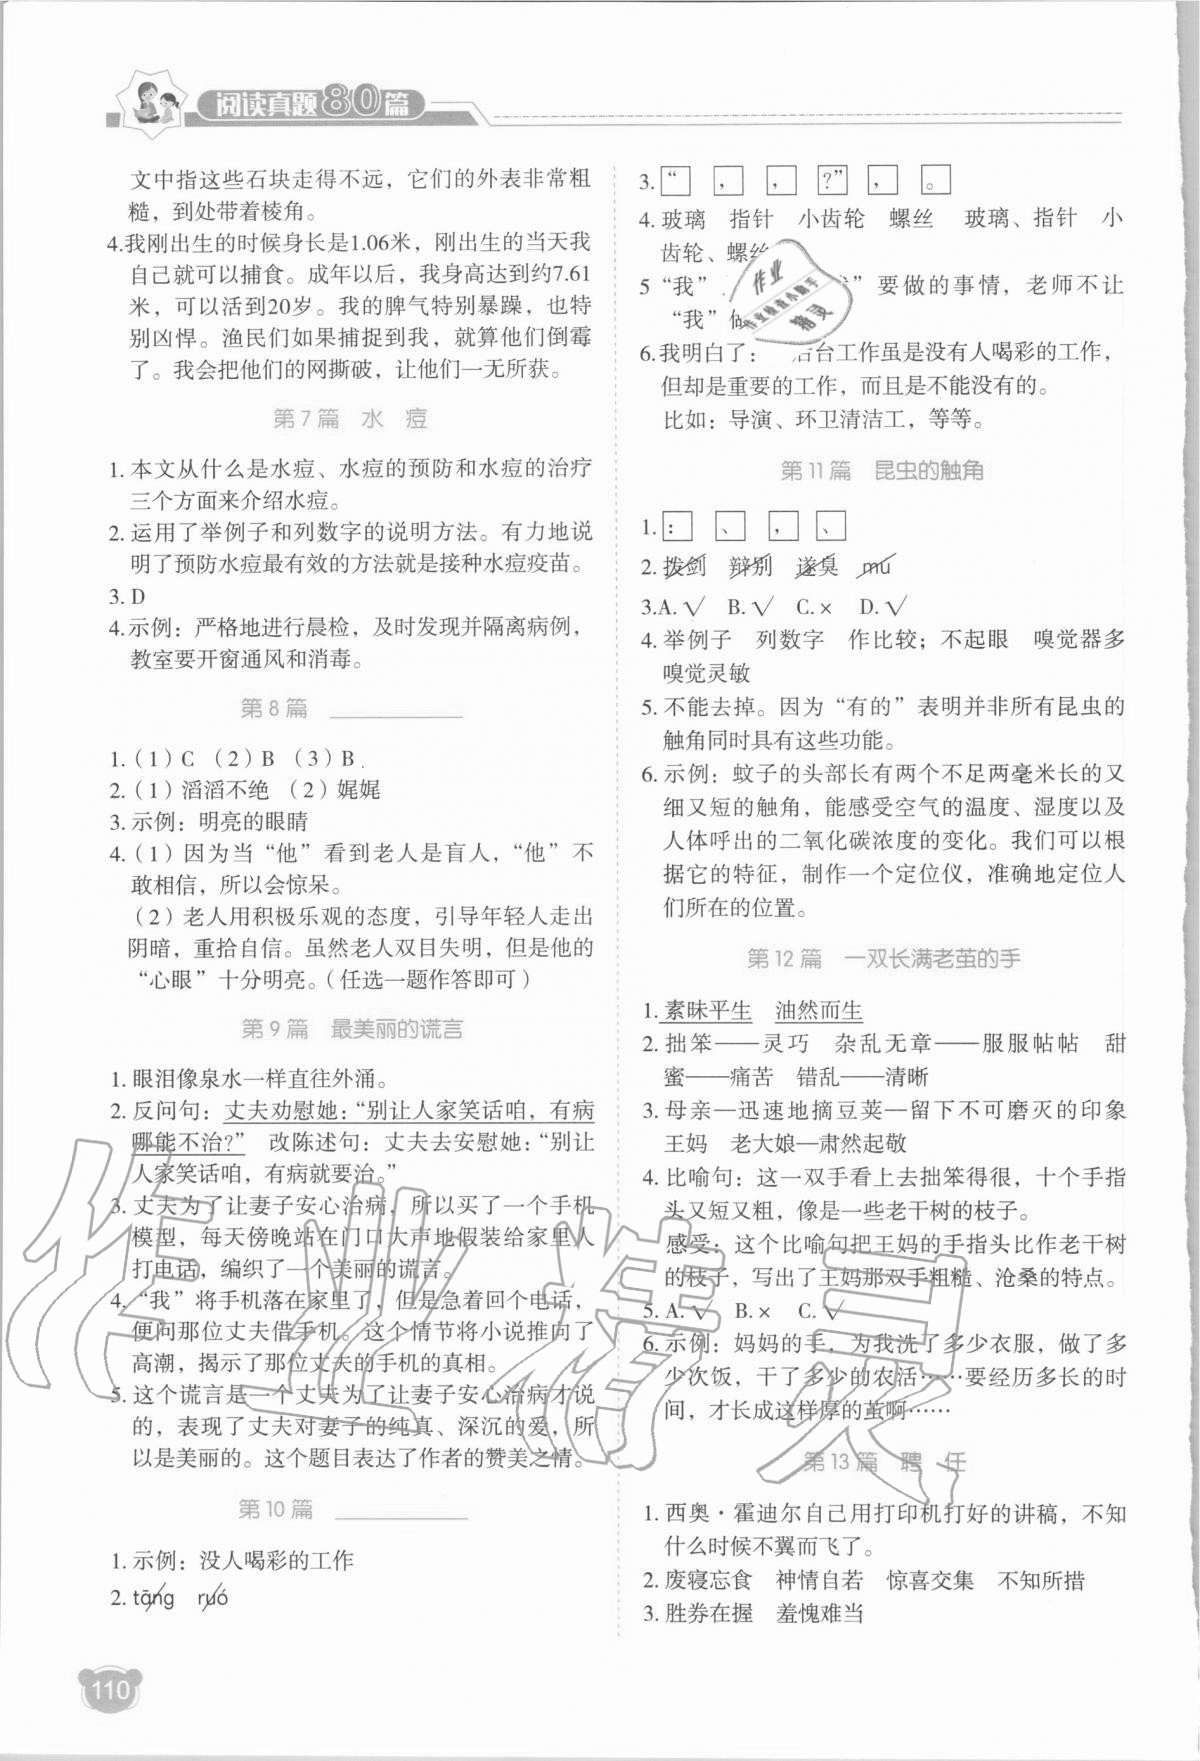 阅读真题80篇
文中指这些石块走得不远，它们的外表非常粗
糙，到处带着棱角。
4.我刚出生的时候身长是1.06米，刚出生的当天我
自己就可以捕食。成年以后，我身高达到约7.61
米，可以活到20岁。我的脾气特别暴躁，也特
别凶悍。渔民们如果捕捉到我，就算他们倒霉
了。我会把他们的网撕破，让他们一无所获。
第7篇 水 痘
1. 本文从什么是水痘、水痘的预防和水痘的治疗
三个方面来介绍水痘。
2. 运用了举例子和列数字的说明方法。有力地说
明了预防水痘最有效的方法就是接种水痘疫苗。
3. D
4.示例：严格地进行晨检，及时发现并隔离病例，
教室要开窗通风和消毒。
第8篇
1.（1）C （2）B （3）B
2.（1）滔滔不绝 （2）娓娓
3. 示例：明亮的眼睛
4.（1）因为当“他”看到老人是盲人，“他”不
敢相信，所以会惊呆。
（2）老人用积极乐观的态度，引导年轻人走出
阴暗，重拾自信。虽然老人双目失明，但是他的
“心眼”十分明亮。（任选一题作答即可）
第9篇 最美丽的谎言
1. 眼泪像泉水一样直往外涌。
2. 反问句：丈夫劝慰她：“别让人家笑话咱，有病
哪能不治？” 改陈述句：丈夫去安慰她：“别让
人家笑话咱，有病就要治。”
3. 丈夫为了让妻子安心治病，所以买了一个手机
模型，每天傍晚站在门口大声地假装给家里人
打电话，编织了一个美丽的谎言。
4. “我”将手机落在家里了，但是急着回个电话，
便问那位丈夫借手机。这个情节将小说推向了
高潮，揭示了那位丈夫的手机的真相。
5. 这个谎言是一个丈夫为了让妻子安心治病才说
的，表现了丈夫对妻子的纯真、深沉的爱，所
以是美丽的。这个题目表达了作者的赞美之情。
第10篇
1. 示例：没人喝彩的工作
2. tāng ruó
110
3. “ ， ， ？” ， 。
4. 玻璃 指针 小齿轮 螺丝 玻璃、指针 小
齿轮、螺丝
5 “我” ”要做的事情，老师不让
“我”做
6.我明白了： 后台工作虽是没有人喝彩的工作，
但却是重要的工作，而且是不能没有的。
比如：导演、环卫清洁工，等等。
第11篇 昆虫的触角
1. ： 、 ， 、
2. 拨剑 辩别 遂臭 mú
3.A.√ B.√ C.× D.√
4. 举例子 列数字 作比较；不起眼 嗅觉器多
嗅觉灵敏
5. 不能去掉。因为“有的”表明并非所有昆虫的
触角同时具有这些功能。
6. 示例：蚊子的头部长有两个不足两毫米长的又
细又短的触角，能感受空气的温度、湿度以及
人体呼出的二氧化碳浓度的变化。我们可以根
据它的特征，制作一个定位仪，准确地定位人
们所在的位置。
第12篇 一双长满老茧的手
1. 素昧平生 油然而生
2. 拙笨——灵巧 杂乱无章——服服帖帖 甜
蜜——痛苦 错乱——清晰
3. 母亲—迅速地摘豆荚—留下不可磨灭的印象
王妈 老大娘—肃然起敬
4. 比喻句：这一双手看上去拙笨得很，十个手指
头又短又粗，像是一些老干树的枝子。
感受：这个比喻句把王妈的手指头比作老干树
的枝子，写出了王妈那双手粗糙、沧桑的特点。
5. A.√ B.× C.√
6. 示例：妈妈的手，为我洗了多少衣服，做了多
少次饭，干了多少的农活……要经历多长的时
间，才长成这样厚的茧啊……
第13篇 聘 任
1. 西奥·霍迪尔自己用打印机打好的讲稿，不知
什么时候不翼而飞了。
2. 废寝忘食 神情自若 惊喜交集 不知所措
3. 胜券在握 羞愧难当
作业
作业检查小助手
精灵
作业精灵